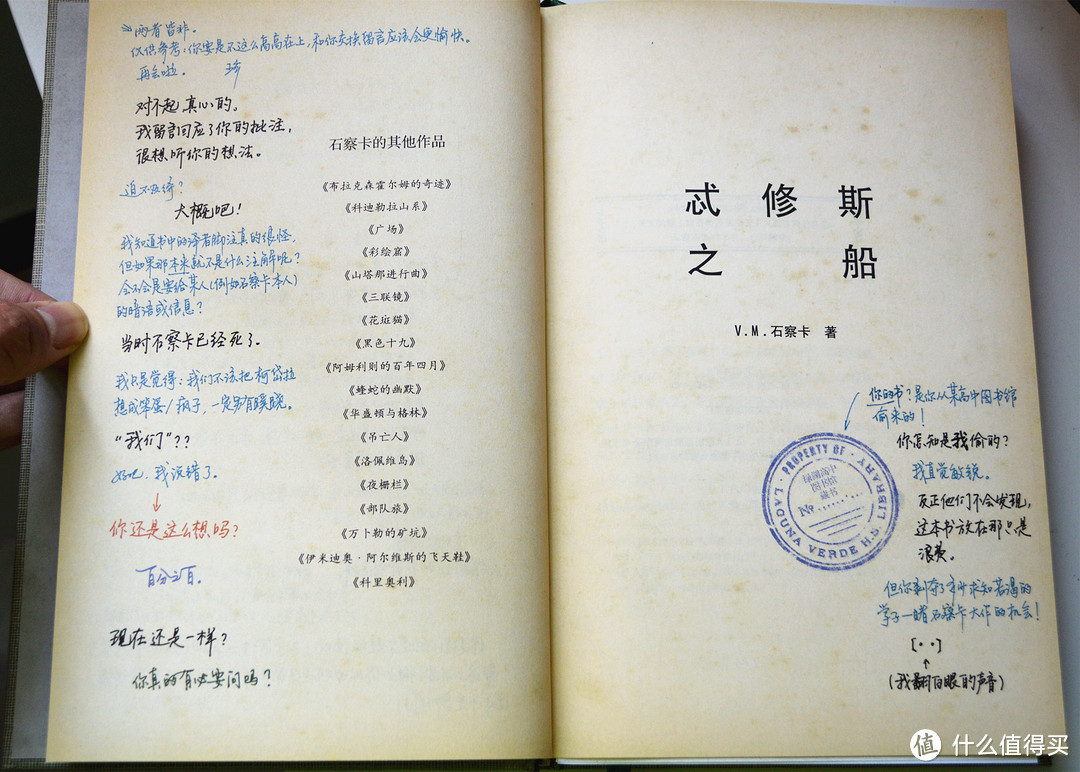 两者皆非。
仅供参考:你要是不这么高高在上,和你交换留言应该会更愉快。
再会啦。 珍
对不起 真心的。
我留言回应了你的批注,
很想听你的想法。
迫不及待?
大概吧!
我知道书中的译者脚注真的很怪,
但如果那本来就不是什么注解呢?
会不会是要给某人(例如石察卡本人)
的暗语或信息?
当时石察卡已经死了。
我只是觉得:我们不该把柯岱拉
想成笨蛋/疯子,一定另有蹊跷。
“我们”??
好吧,我说错了。
你还是这么想吗?
百分之百。
现在还是一样?
你真的有必要问吗?
石察卡的其他作品
《布拉克森霍尔姆的奇迹》
《科迪勒拉山系》
《广场》
《彩绘窟》
《山塔那进行曲》
《三联镜》
《花斑猫》
《黑色十九》
《阿姆利则的百年四月》
《蝰蛇的幽默》
《华盛顿与格林》
《吊亡人》
《洛佩维岛》
《夜栅栏》
《部队旅》
《万卜勒的矿坑》
《伊米迪奥·阿尔维斯的飞天鞋》
《科里奥利》
忒修斯
之船
V.M.石察卡 著
你的书?是你从某高中图书馆
偷来的!
你怎知是我偷的?
我直觉敏锐。
反正他们不会发现,
这本书放在那只是
浪费。
但你剥夺了多少求知若渴的
学子一睹石察卡大作的机会!
[··]
(我翻白眼的声音)
PROPERTY OF
LAGUNA VERDE H.S. LIBRARY
高中
图书馆
藏书
No
值 什么值得买